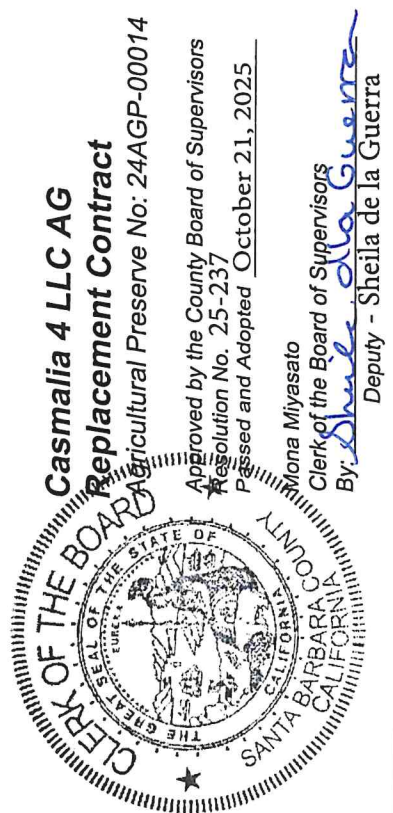 Casmalia 4 LLC AG
Replacement Contract
Agricultural Preserve No: 24AGP-00014
Approved by the County Board of Supervisors
Resolution No. 25-237
Passed and Adopted October 21, 2025
Mona Miyasato
Clerk of the Board of Supervisors
By: Sheila de la Guerra
Deputy - Sheila de la Guerra
CLERK OF THE BOARD
THE GREAT SEAL OF THE STATE OF CALIFORNIA
EUREKA
SANTA BARBARA COUNTY
CALIFORNIA